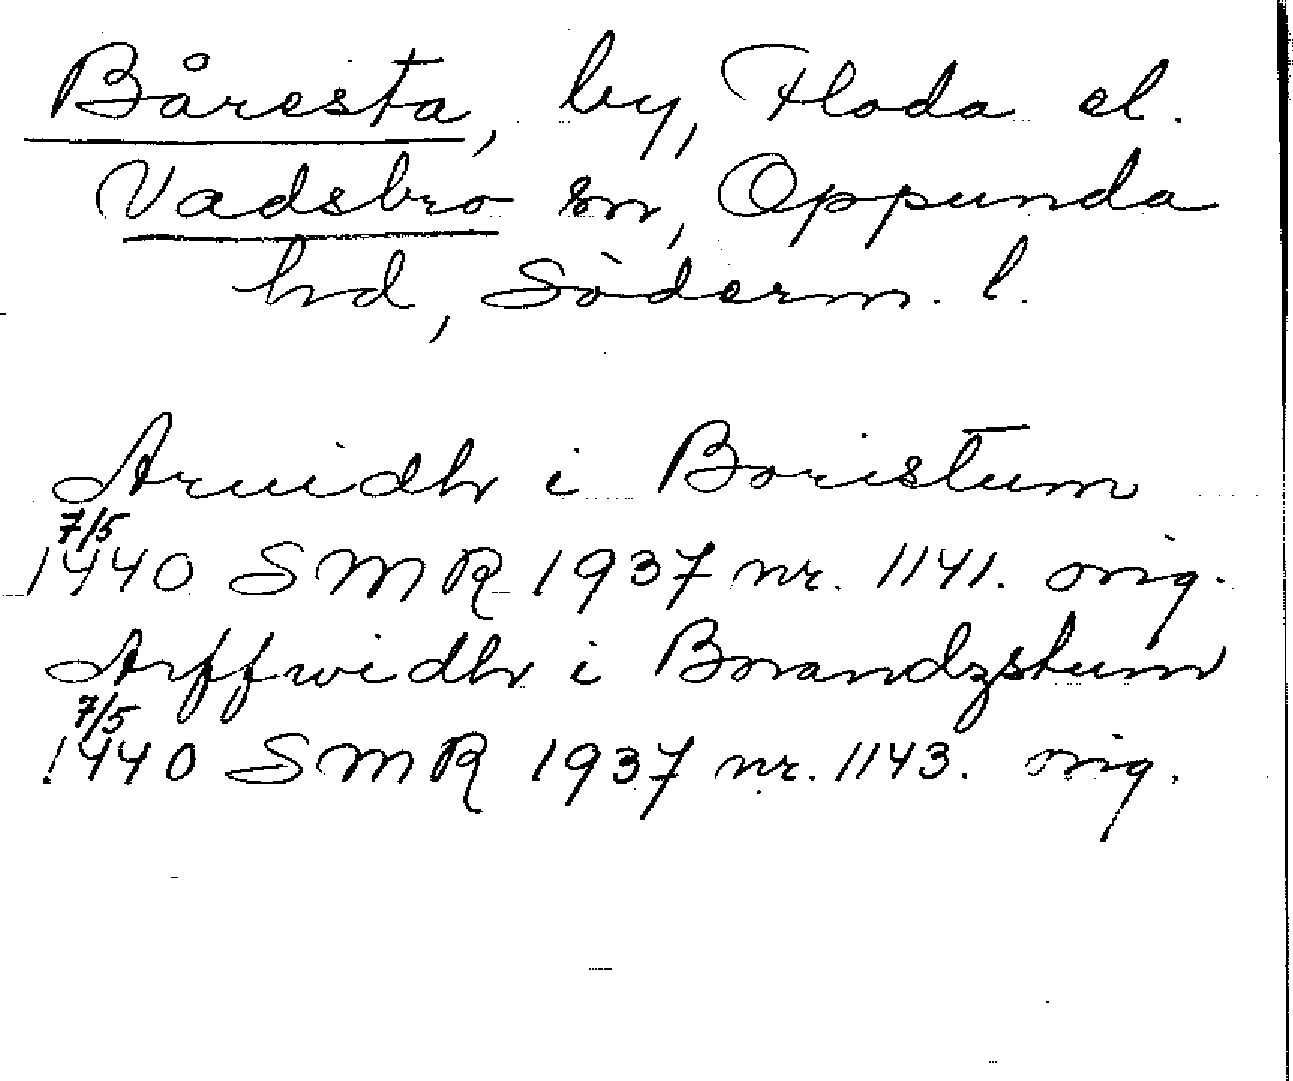 Båresta, by, Floda el.
Vadsbro sn, Oppunda
hd, Söderm. l.
Aruidh i Boristum
7/5
1440 SMR 1937 nr. 1141. orig.
Arffwidh i Borandzstum
7/5
1440 SMR 1937 nr. 1143. orig.